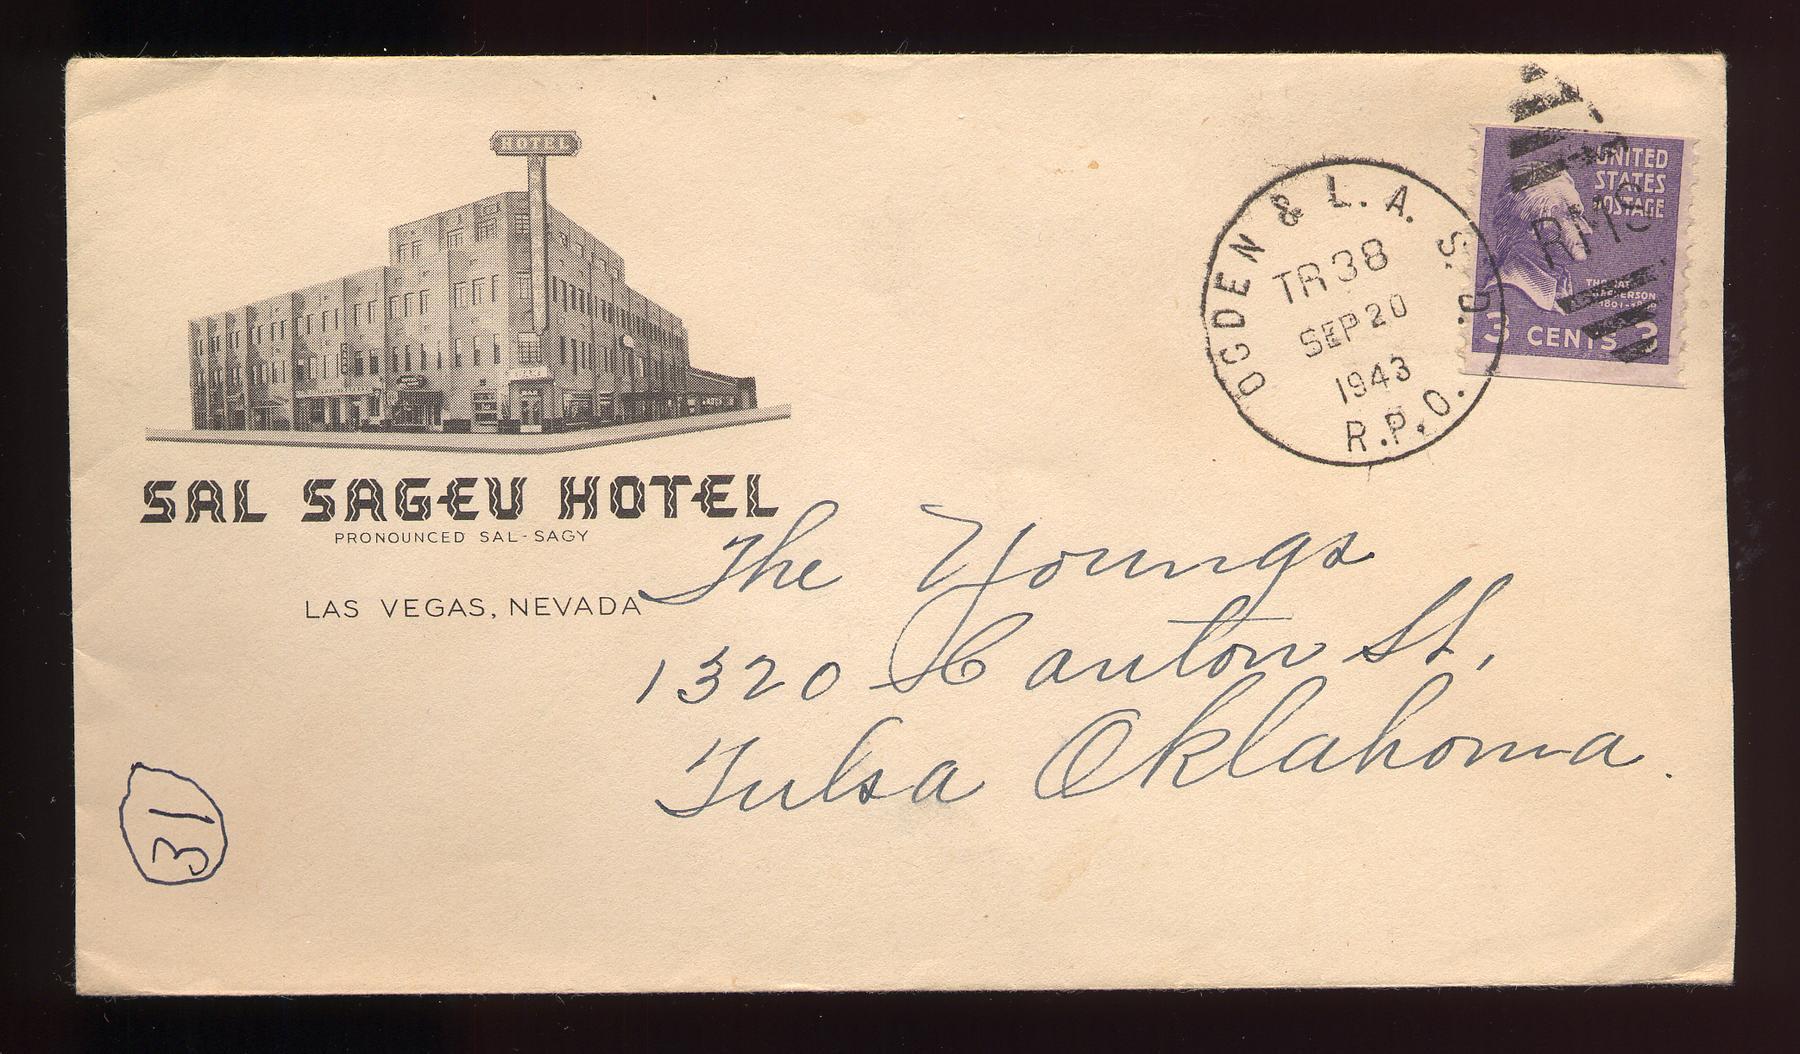 HOTEL
SAL SAGEV HOTEL
PRONOUNCED SAL-SAGY
LAS VEGAS, NEVADA
OGDEN & L. A. S. D.
TR 38
SEP 20
1943
R.P.O.
RMS
UNITED
STATES
POSTAGE
THOMAS
JEFFERSON
3 CENTS 3
The Youngs
1320 Canton St,
Tulsa Oklahoma.
31